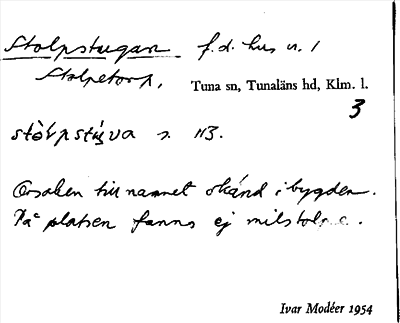 Stolpstugan f.d. hus n. 1
Stolpetorp,
Tuna sn, Tunaläns hd, Klm. l.
3
stòlpstùva s. 113.
Orsaken till namnet okänd i bygden.
På platsen fanns ej milstolpe.
Ivar Modéer 1954